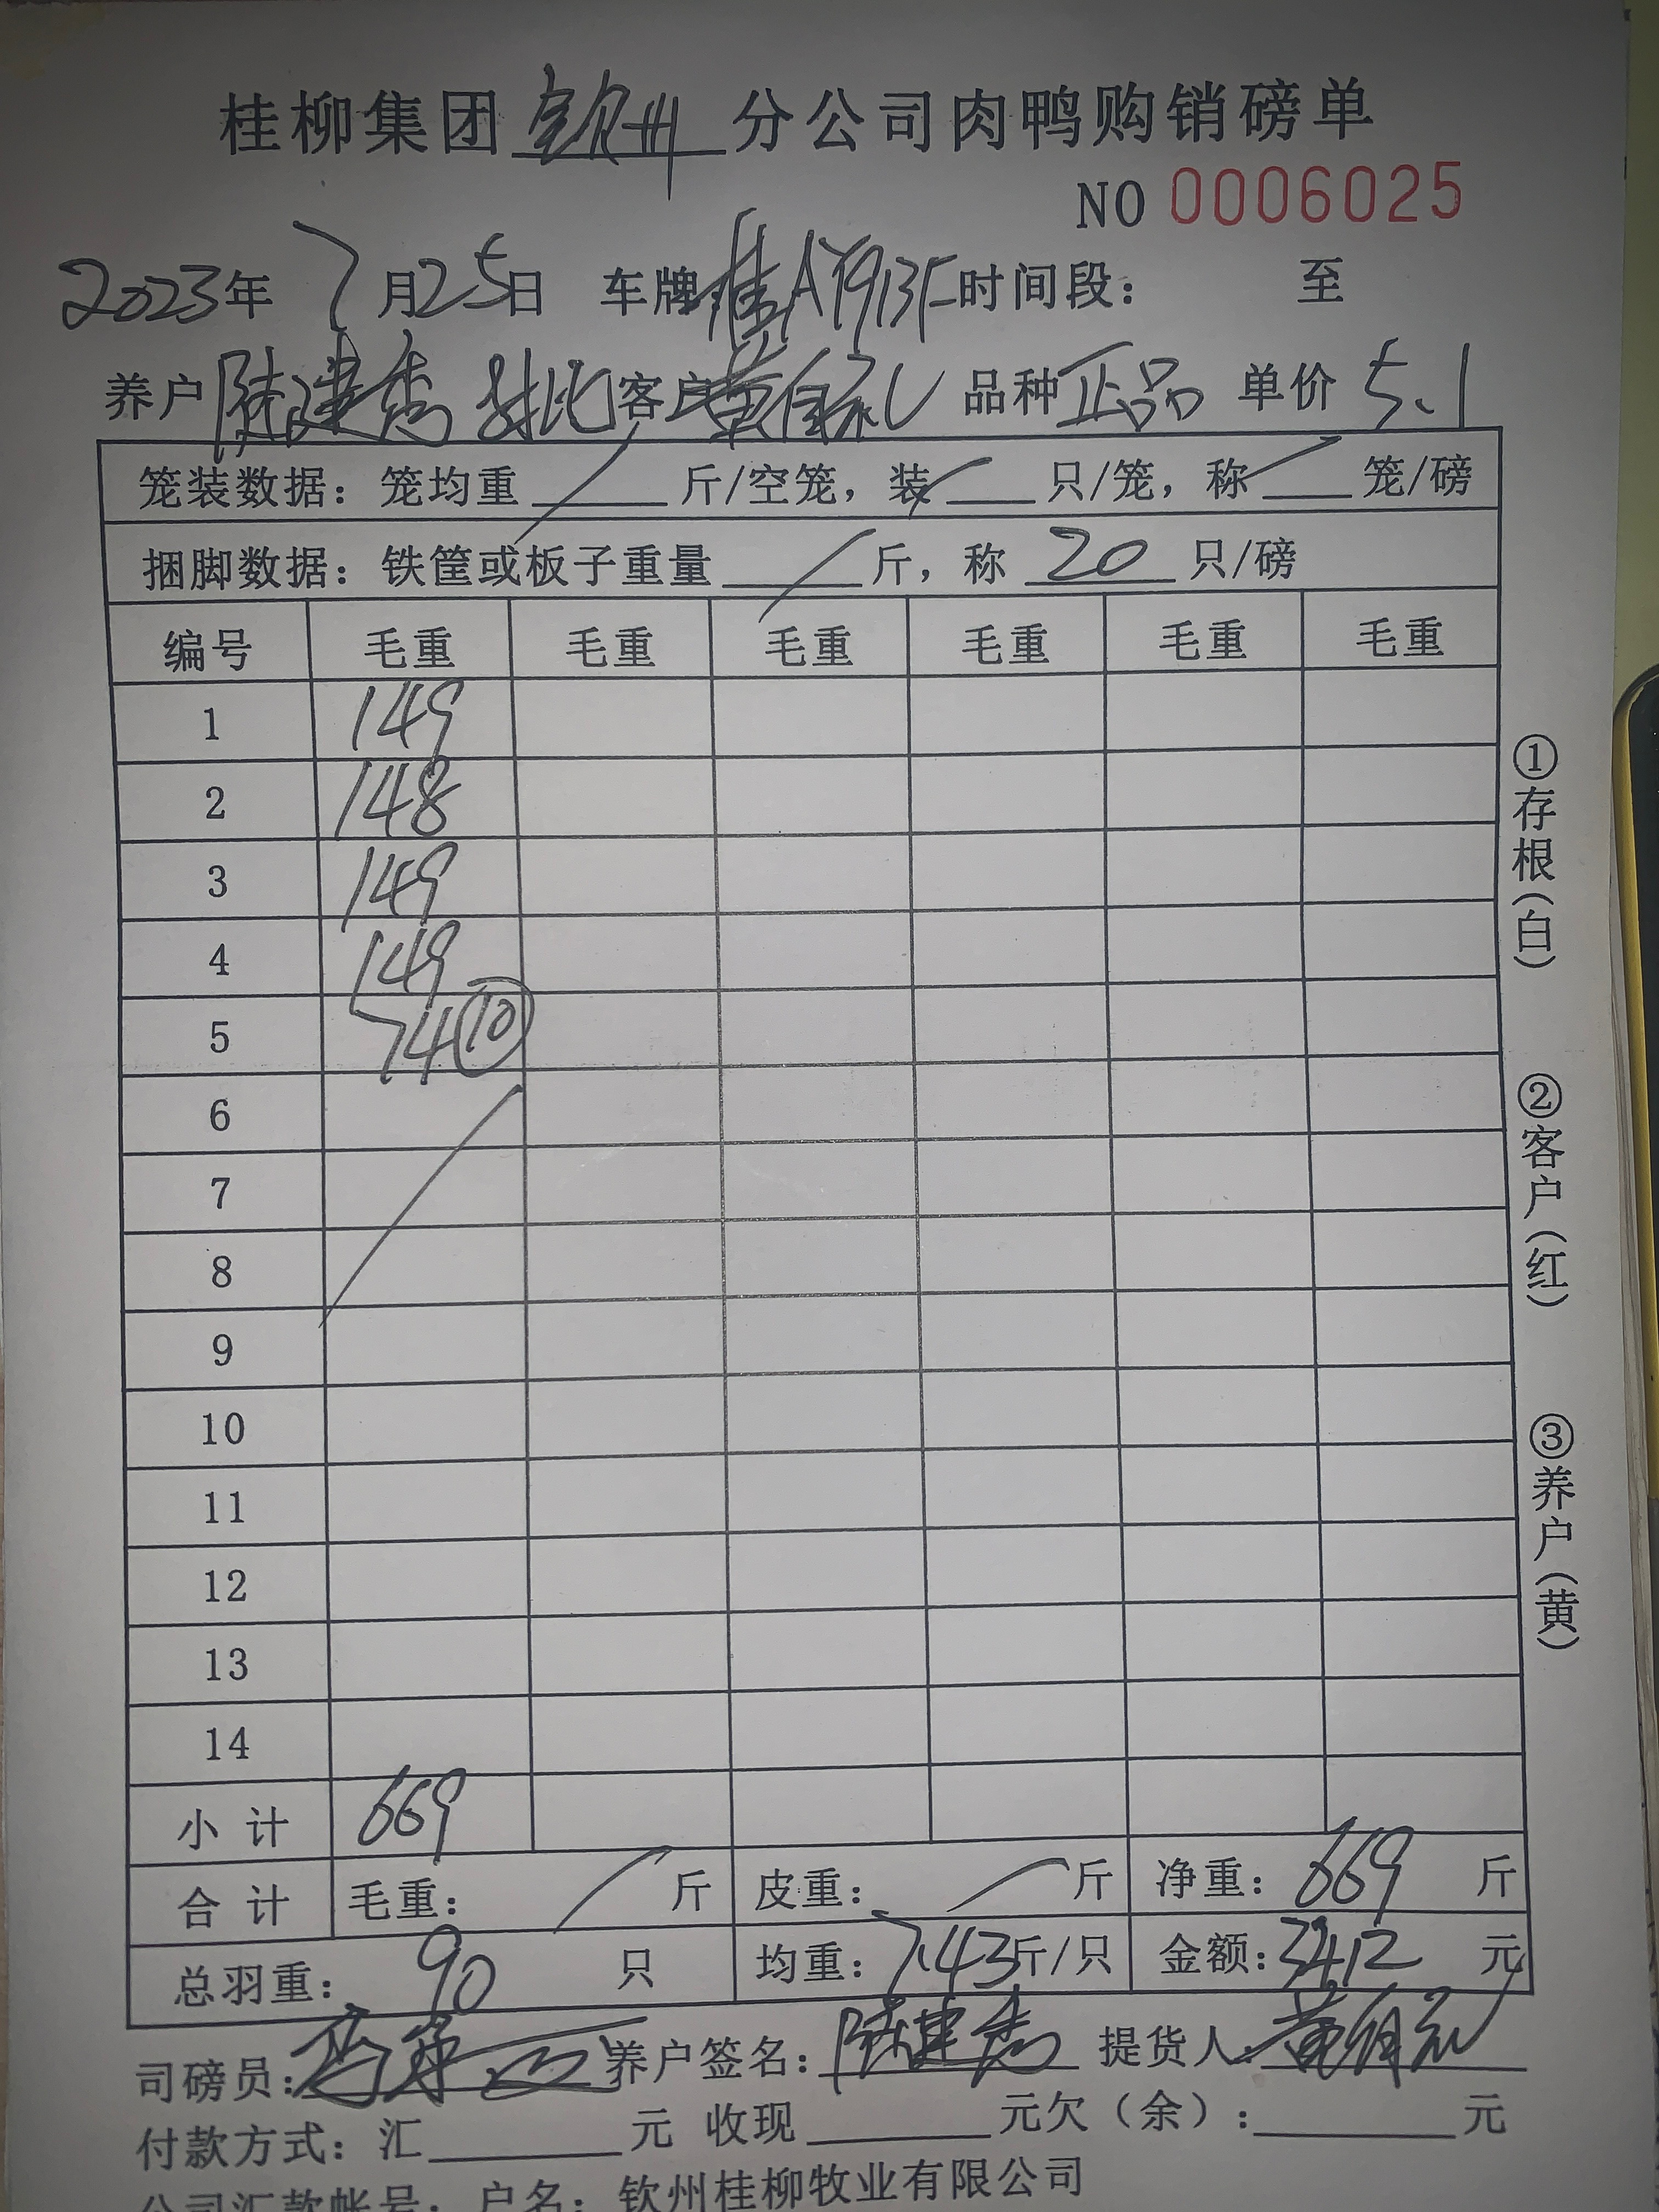 桂柳集团 钦州 分公司肉鸭购销磅单
NO 0006025
2023年 7月25日 车牌 桂AY913F 时间段: 至
养户 陆建秀 客户 黄 品种 正品 单价 5.1
笼装数据:笼均重 斤/空笼,装 只/笼,称 笼/磅
捆脚数据:铁筐或板子重量 斤,称 20 只/磅
编号 毛重 毛重 毛重 毛重 毛重 毛重
1 149
2 148
3 149
4 149
5 74 ⑩
6
7
8
9
10
11
12
13
14
小计 669
合计 毛重: 斤 皮重: 斤 净重: 669 斤
总羽重: 90 只 均重: 7.43斤/只 金额: 3412 元
司磅员: 养户签名: 陆建秀 提货人: 黄
付款方式:汇 元 收现 元欠(余): 元
公司汇款帐号:户名:钦州桂柳牧业有限公司
①存根(白)
②客户(红)
③养户(黄)